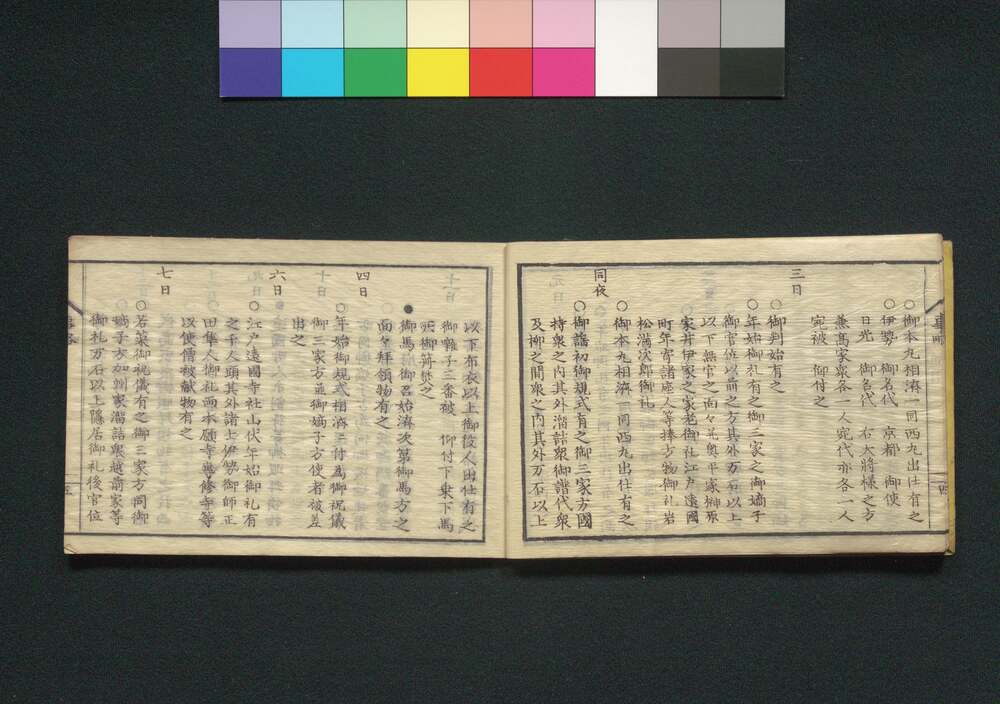 ○御本丸相濟一同西丸出仕有之
○伊勢 御名代 京都 御使
日光 御名代 右大將様之方
兼高家衆各一人宛代亦各一人
宛被 仰付之
三日
○御判始有之
○年始御礼有之御三家之御嫡子
御官位以前之方其外万石以上
以下無官之面々并奥平家榊原
家井伊家之家老御礼江戸遠國
町年寄諸座人等捧方物御礼岩
松満次郎御礼
○御本丸相濟一同西丸出仕有之
同夜
○御謡初御規式有之御三家方國
持衆之内其外溜詰衆御譜代衆
及柳之間衆之内其外万石以上
以下布衣以上御役人出仕有之
御囃子三番被 仰付下乗下馬
所御篝焚之
●御馬御召始濟次第御馬方之
面々拝領物有之
四日
○年始御規式相濟二付為御祝儀
十日
御三家方并御嫡子方使者被差
出之
六日
○江戸遠國寺社山伏年始御礼有
之千人頭其外諸士伊勢御師正
田隼人御礼両本願寺専修寺等
以使僧被献物有之
七日
○若菜御祝儀有之御三家方同御
嫡子方加州家溜詰衆越前家等
御礼万石以上隠居御礼後官位
四
五